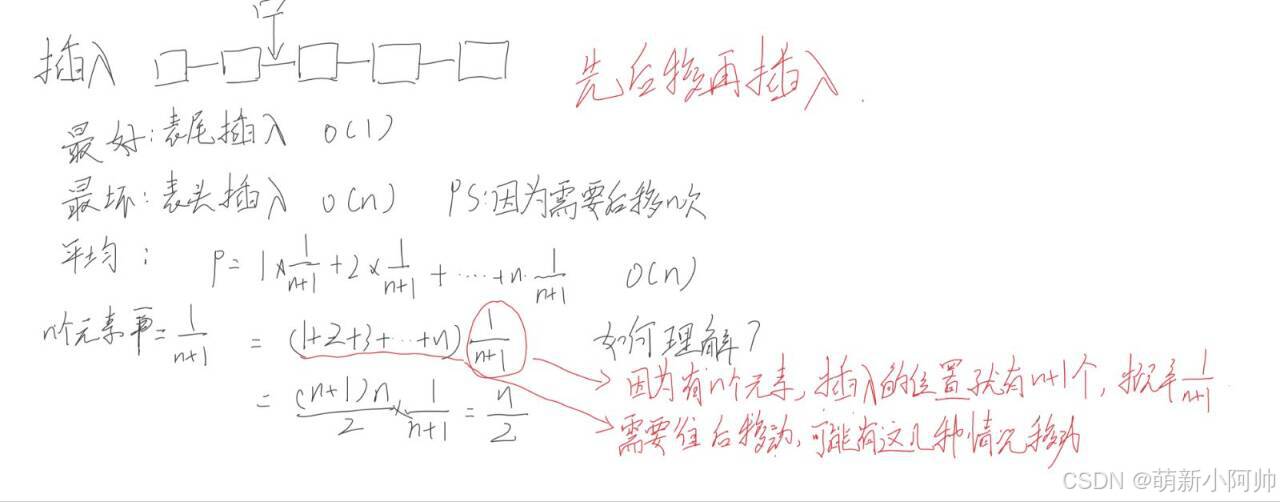 插入
先后移再插入.
最好:表尾插入 O(1)
最坏:表头插入 O(n) PS:因为需要后移n次
平均: P=1×1/(n+1)+2×1/(n+1)+……+n·1/(n+1) O(n)
n个元素 =1/(n+1) =(1+2+3+…+n) 1/(n+1) 如何理解?
因为有n个元素,插入的位置就有n+1个,概率1/(n+1)
=(n+1)n/2×1/(n+1)=n/2
需要往后移动,可能有这几种情况移动
CSDN @萌新小阿帅